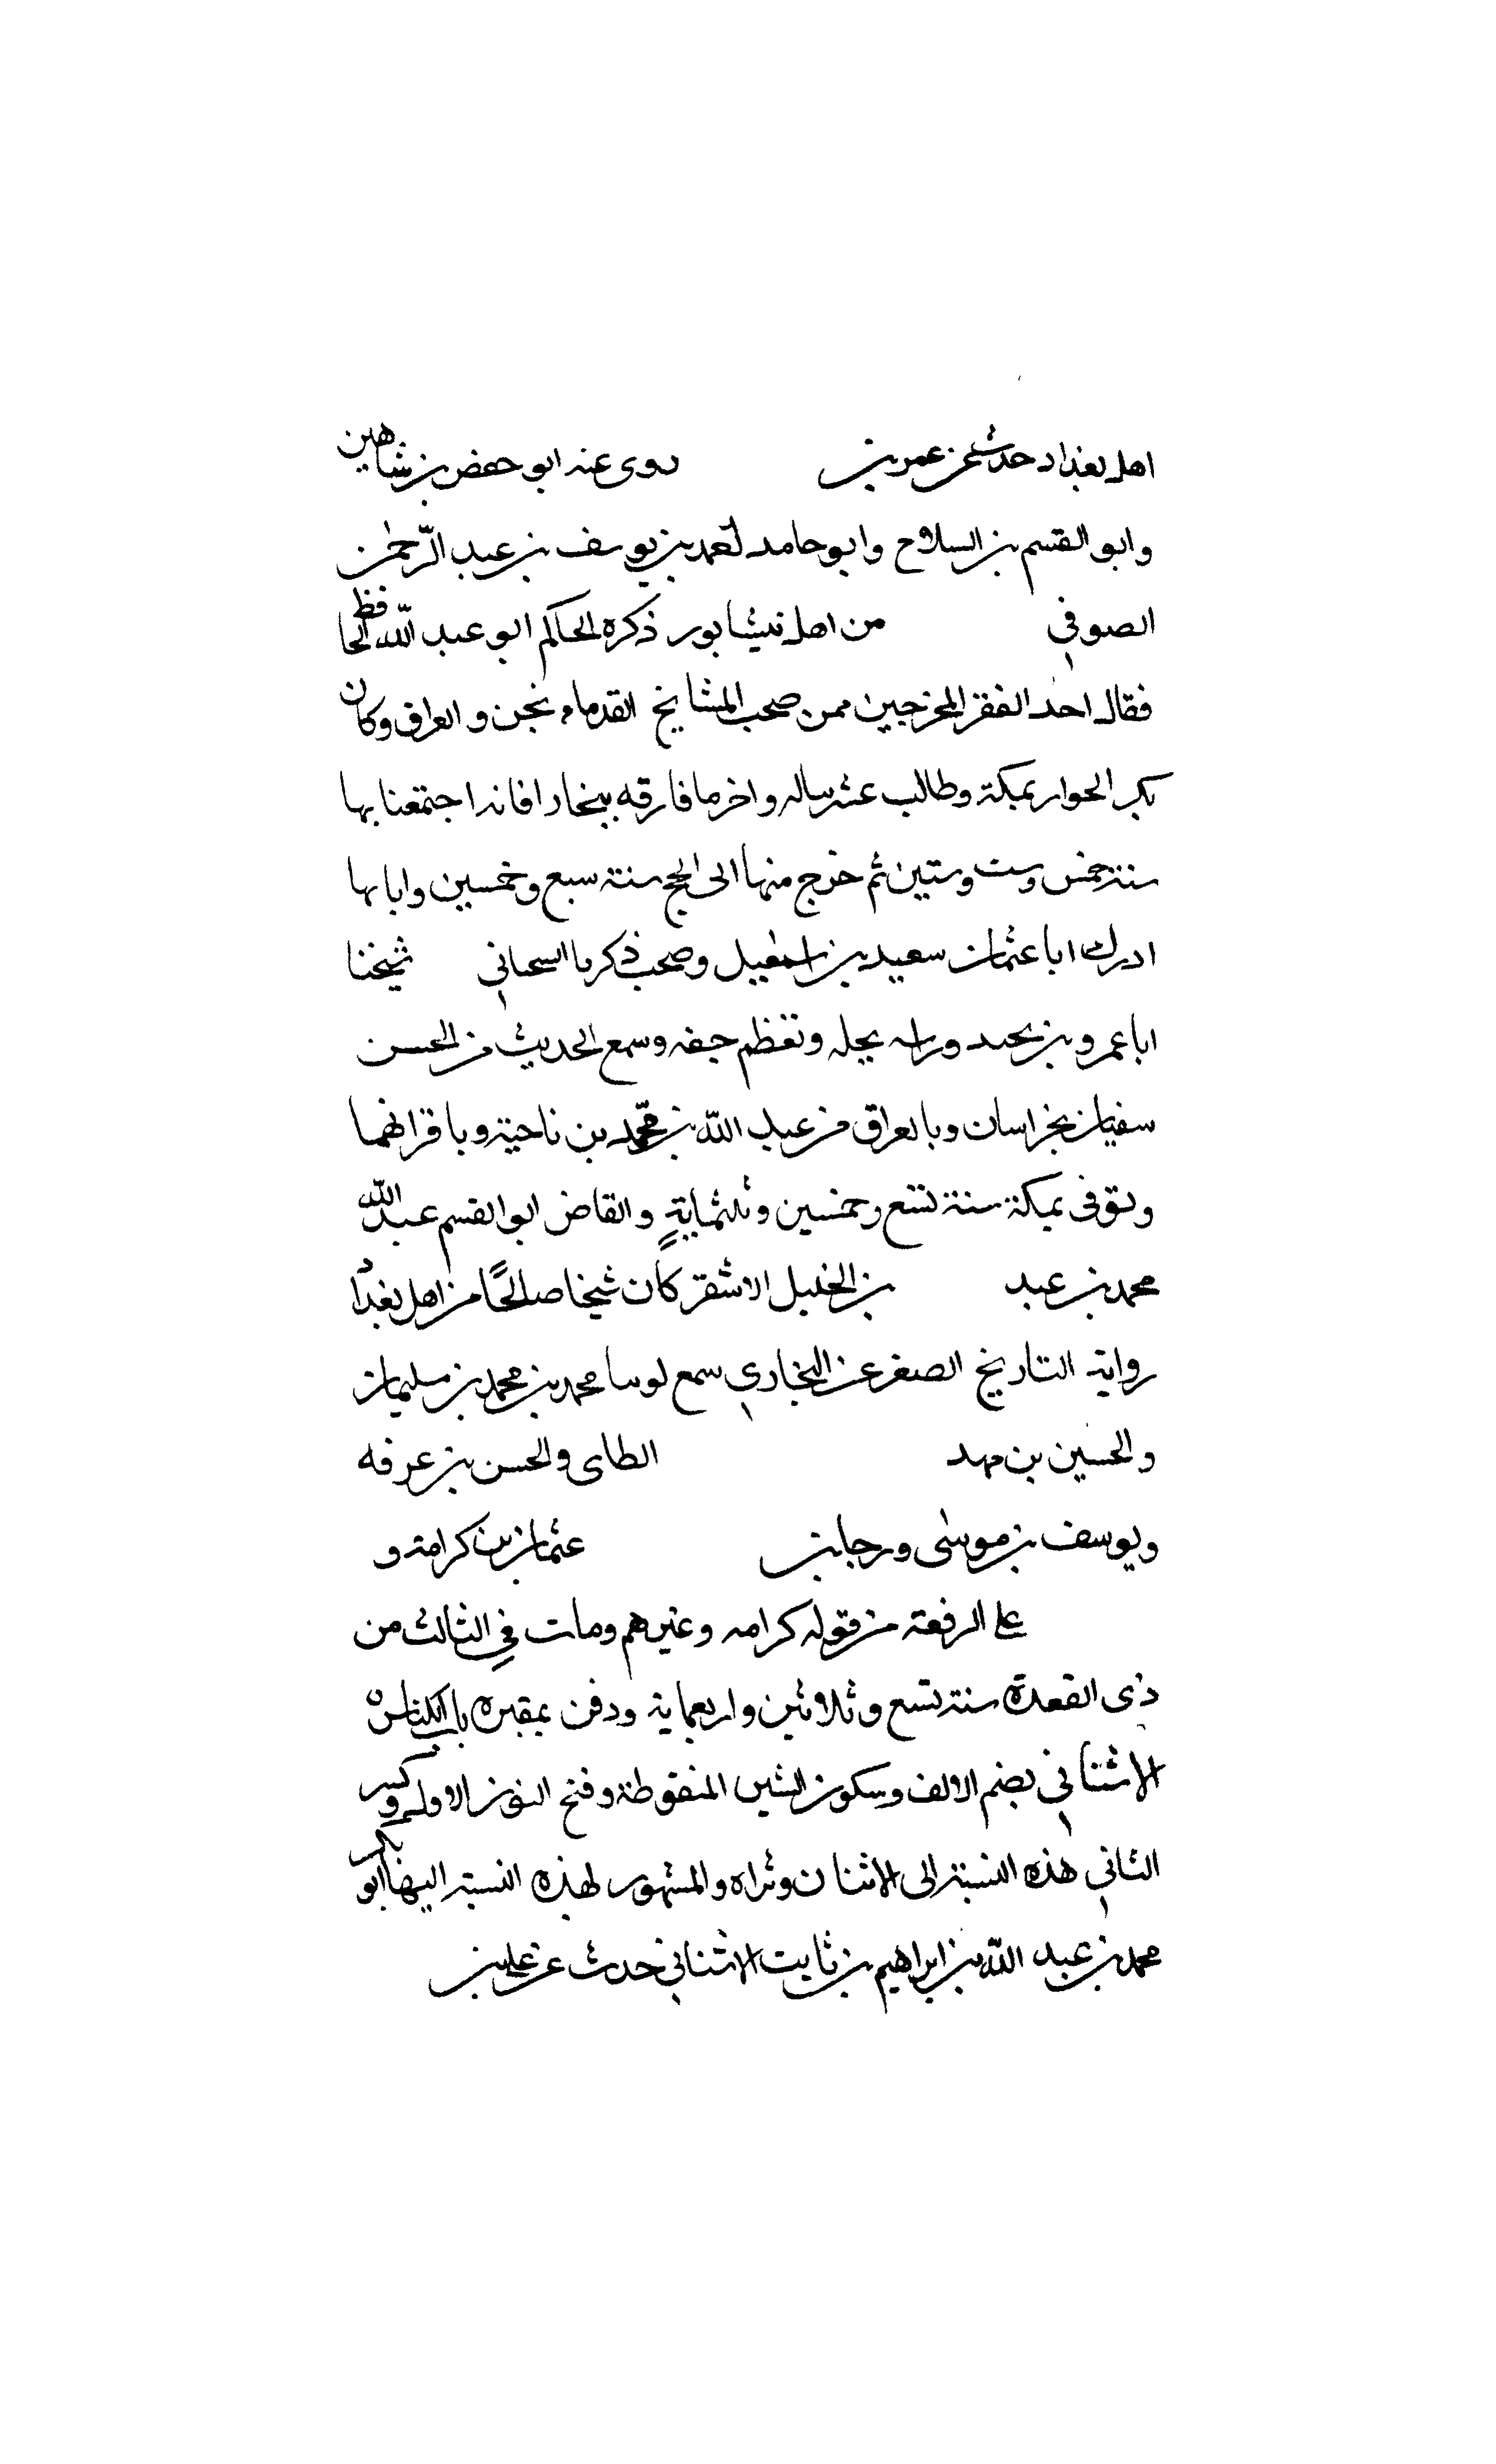 اهل بغداد حدث عن عمر بن روى عنه ابو حفص بن شاهين
وابو القسم بن السلاح وابو حامد احمد بن يوسف بن عبد الرحمن
الصوفي من اهل نيشابور ذكره الحاكم ابو عبد الله الحافظ
فقال احد الفقر المخرجين ممن صحب المشايخ القدماء بخن والعراق وكان
بكر الحوار بمكة وطالب عشر ساله واخر ما فارقه ببخارا فانه اجتمعنا بها
سنة خمس وست وستين ثم خرج منها الى الحج سنة سبع وخمسين وابابها
ادرك ابا عثمان سعيد بن اسمعيل وصحب ذكريا السحاني شيخنا
ابا عمرو بن بجله وتعظم حقه وسمع الحديث من الحسن
سفيان بخراسان وبالعراق من عبد الله بن محمد بن ناحية وباقرانهما
وتوفى بمكة سنة تسع وخمسين وثلثماية والقاض ابو القسم عبد الله
محمد بن عبد بن الخليل الاشقر كان شيخا صالحًا من اهل بغداد
رواية التاريخ الصغر عن البخاري سمع لوينا محمد بن محمد بن سليمان
والحسين بن مهد الطاى والحسن بن عرفه
ويوسف بن موسى ورجا بن عثمان بن كرامة و
على الرفعة من قوله كرامه وغيرهم ومات في الثالث من
ذى القعدة سنة تسع وثلاثين واربعماية ودفن بمقبره باب الكناس
الاشناني بضم الالف وسكون الشين المنقوطة وفتح النون الاولى وكسر
الثاني هذه النسبة الى الاشنان وشراه والمشهور بهذه النسبة اليها ابو بكر
محمد بن عبد الله بن ابراهيم بن ثابت الاشناني حدث عن علي بن